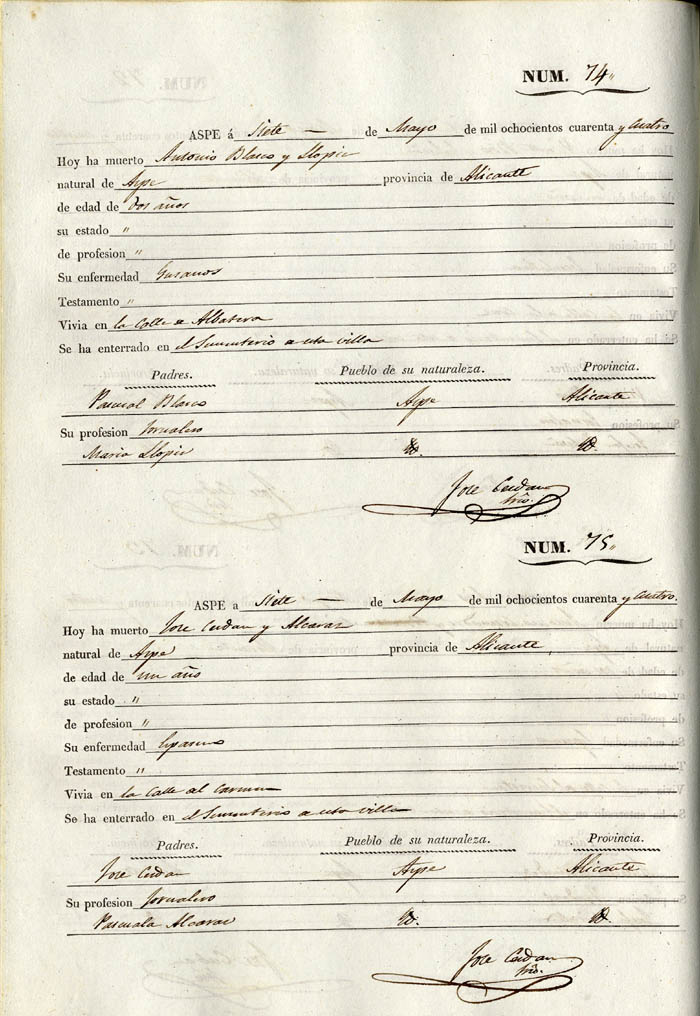 NUM. 74"
ASPE á Siete — de Mayo de mil ochocientos cuarenta y Cuatro
Hoy ha muerto Antonio Blasco y Llopis
natural de Aspe provincia de Alicante
de edad de Dos años
su estado "
de profesion "
Su enfermedad Gusanos
Testamento "
Vivia en la Calle de Albatera
Se ha enterrado en el Sementerio de esta villa
Padres. Pueblo de su naturaleza. Provincia.
Pascual Blasco Aspe Alicante
Su profesion Jornalero
Maria Llopis Yd. Yd.
Jose Cerdan
srio.
NUM. 75"
ASPE a Siete — de Mayo de mil ochocientos cuarenta y Cuatro.
Hoy ha muerto Jose Cerdan y Alcaraz
natural de Aspe provincia de Alicante,
de edad de un año
su estado "
de profesion "
Su enfermedad Espasmo
Testamento "
Vivia en la Calle del Carmen
Se ha enterrado en el Sementerio de esta villa
Padres. Pueblo de su naturaleza. Provincia.
Jose Cerdan Aspe Alicante
Su profesion Jornalero
Pascuala Alcaraz Yd. Yd.
Jose Cerdan
srio.